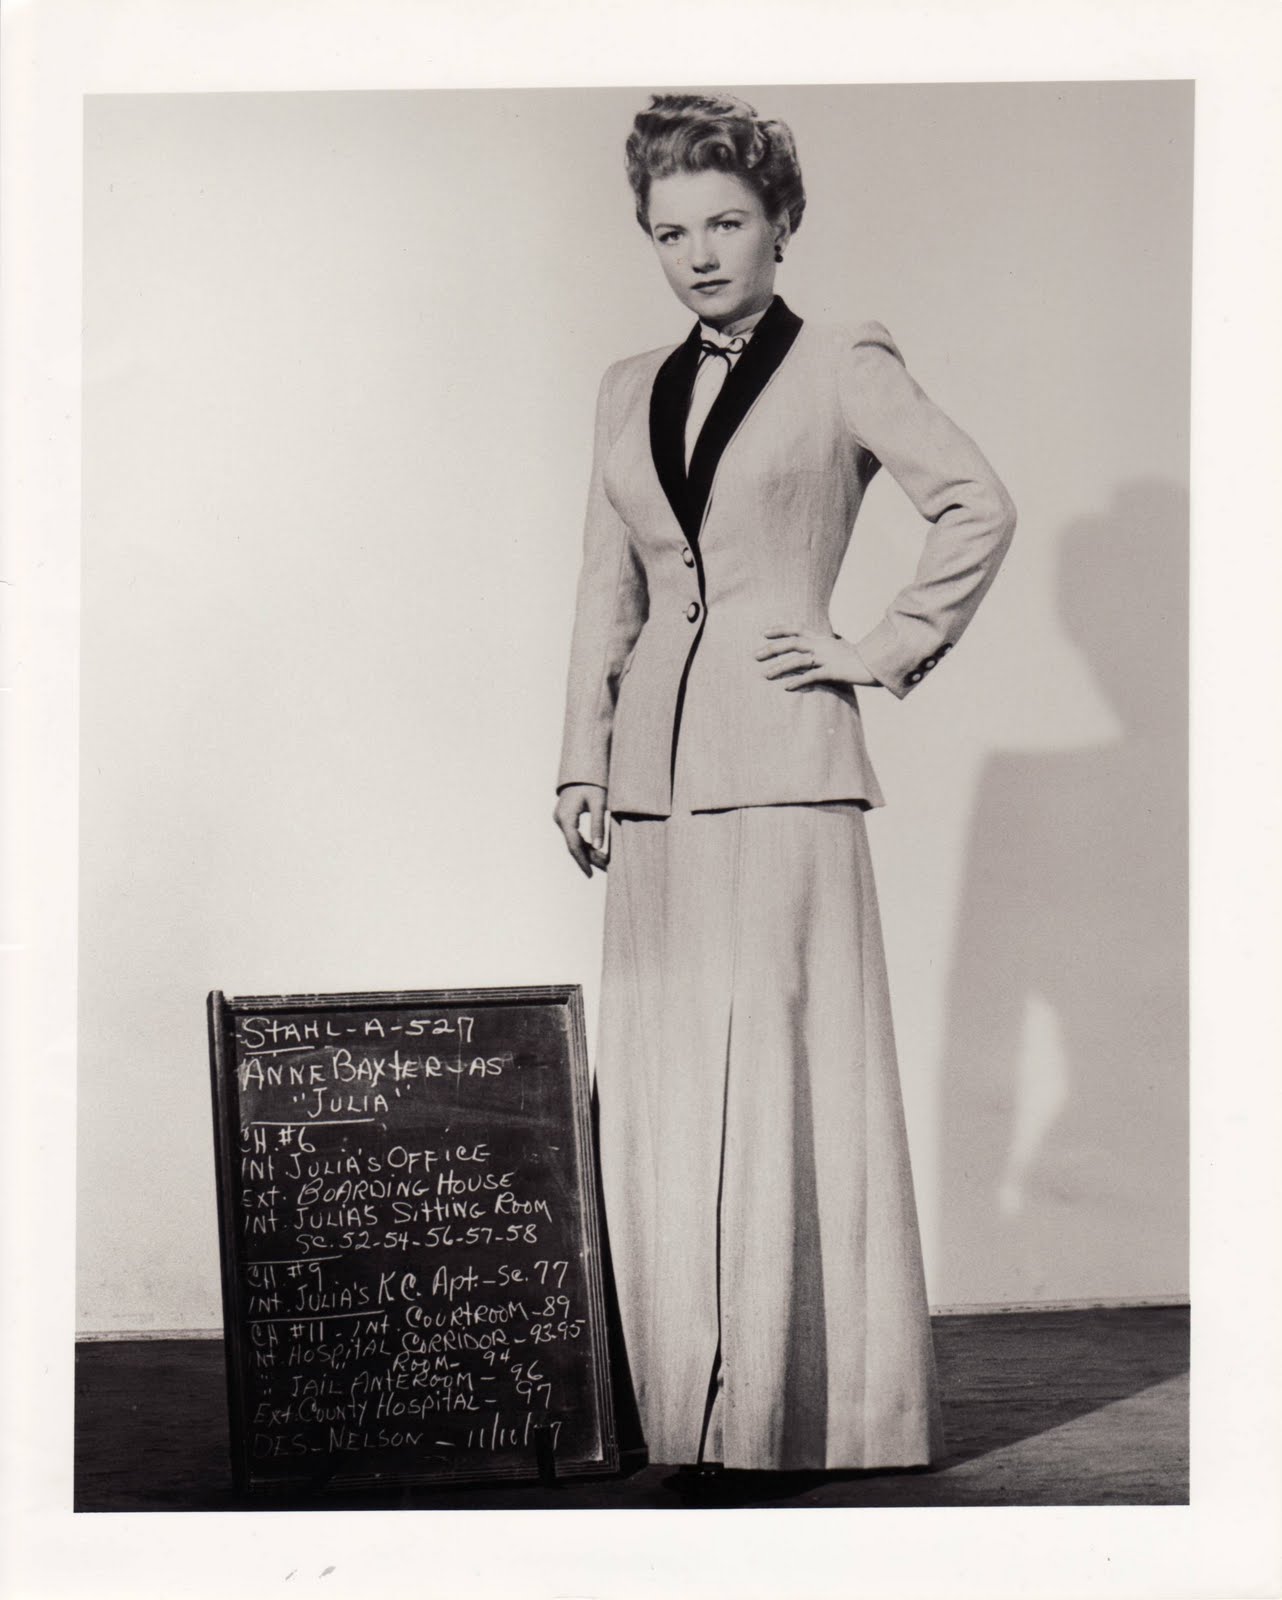 STAHL-A-527
ANNE BAXTER-AS
"JULIA"
CH. #6
INT. JULIA'S OFFICE
EXT. BOARDING HOUSE
INT. JULIA'S SITTING ROOM
SC. 52-54-56-57-58
CH. #9
INT. JULIA'S K.C. Apt.-Sc. 77
CH #11 - INT. COURTROOM-89
INT. HOSPITAL CORRIDOR-93-95
" " ROOM- 94
" JAIL ANTEROOM - 96
Ext. COUNTY HOSPITAL - 97
DES-NELSON - 11/10/ 7